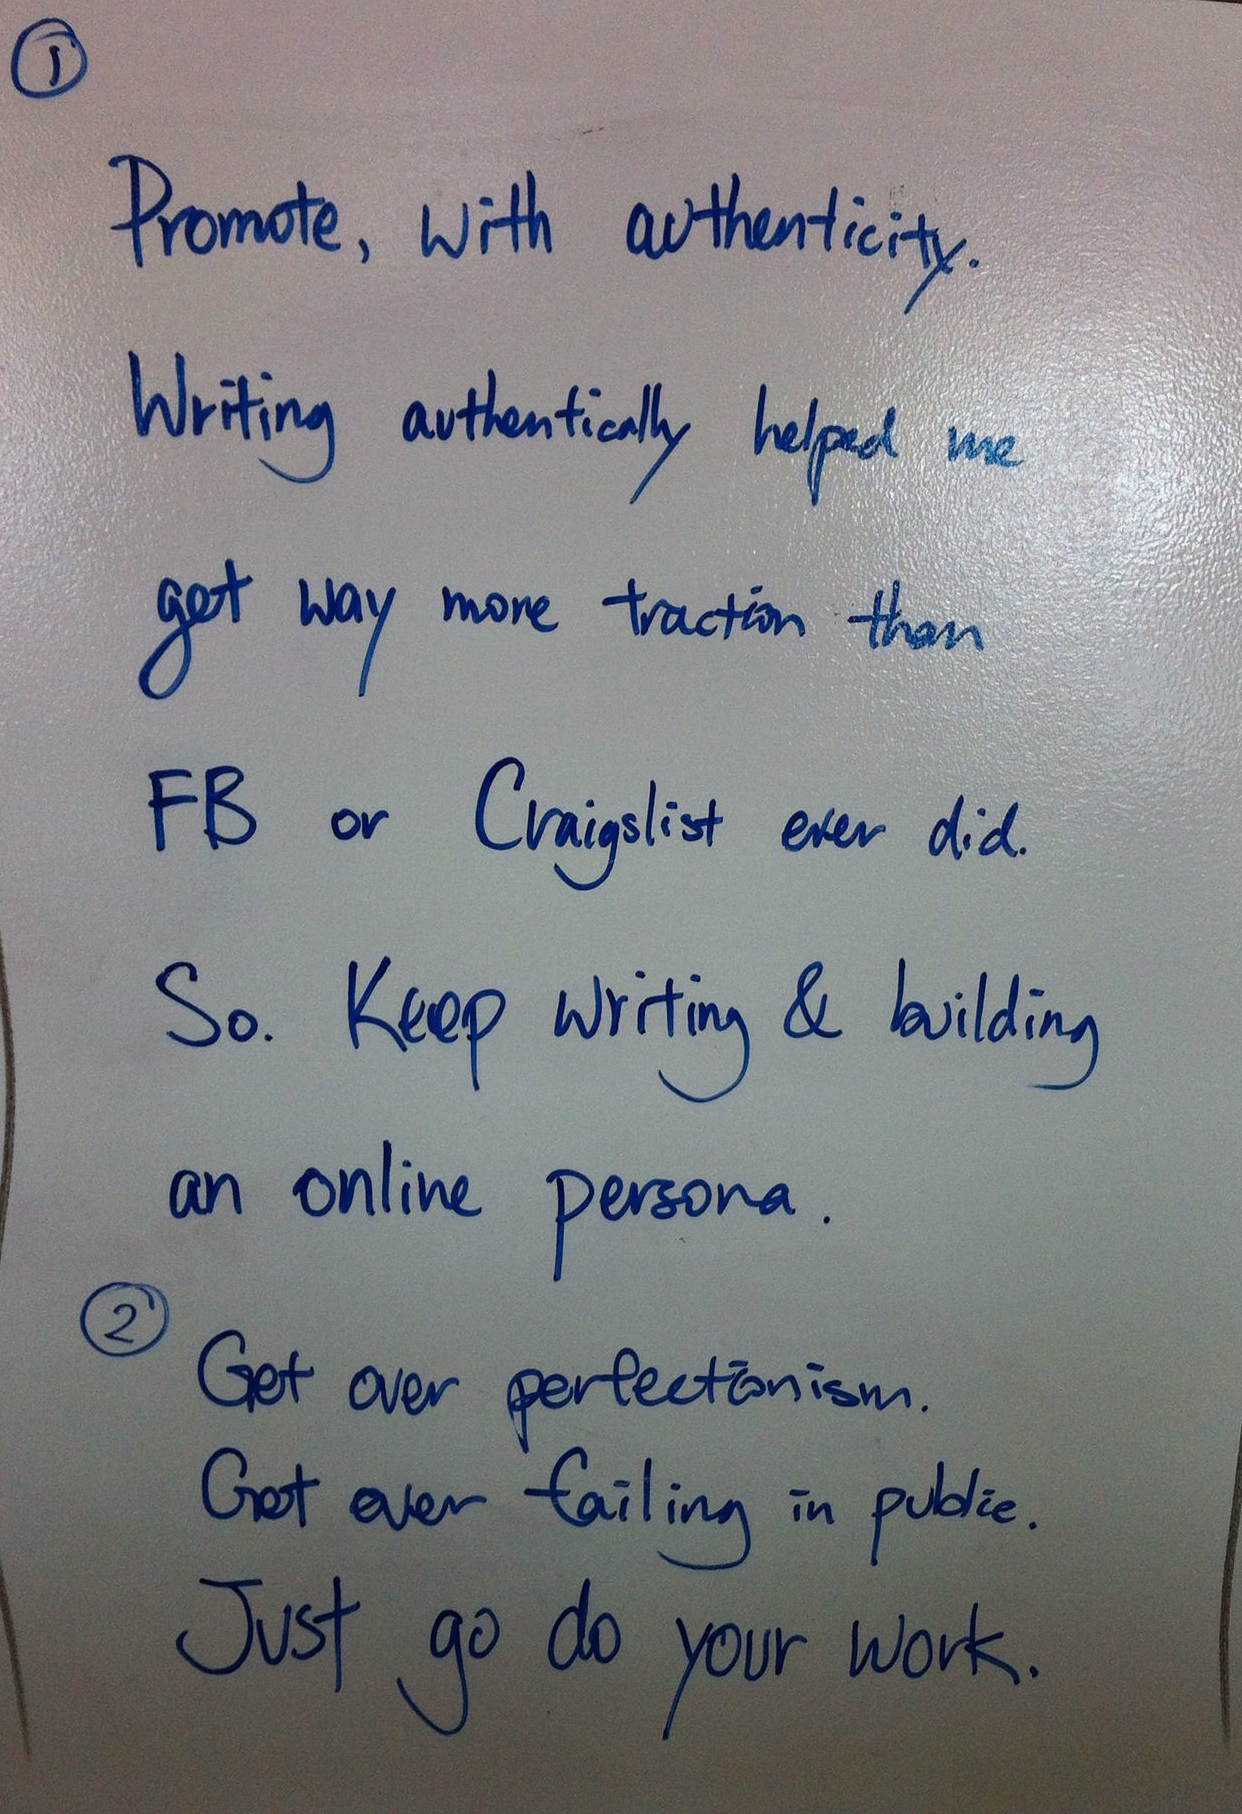 1
Promote, with authenticity.
Writing authentically helped me
get way more traction than
FB or Craigslist ever did.
So. Keep writing & building
an online persona.
2
Get over perfectionism.
Get over failing in public.
Just go do your work.